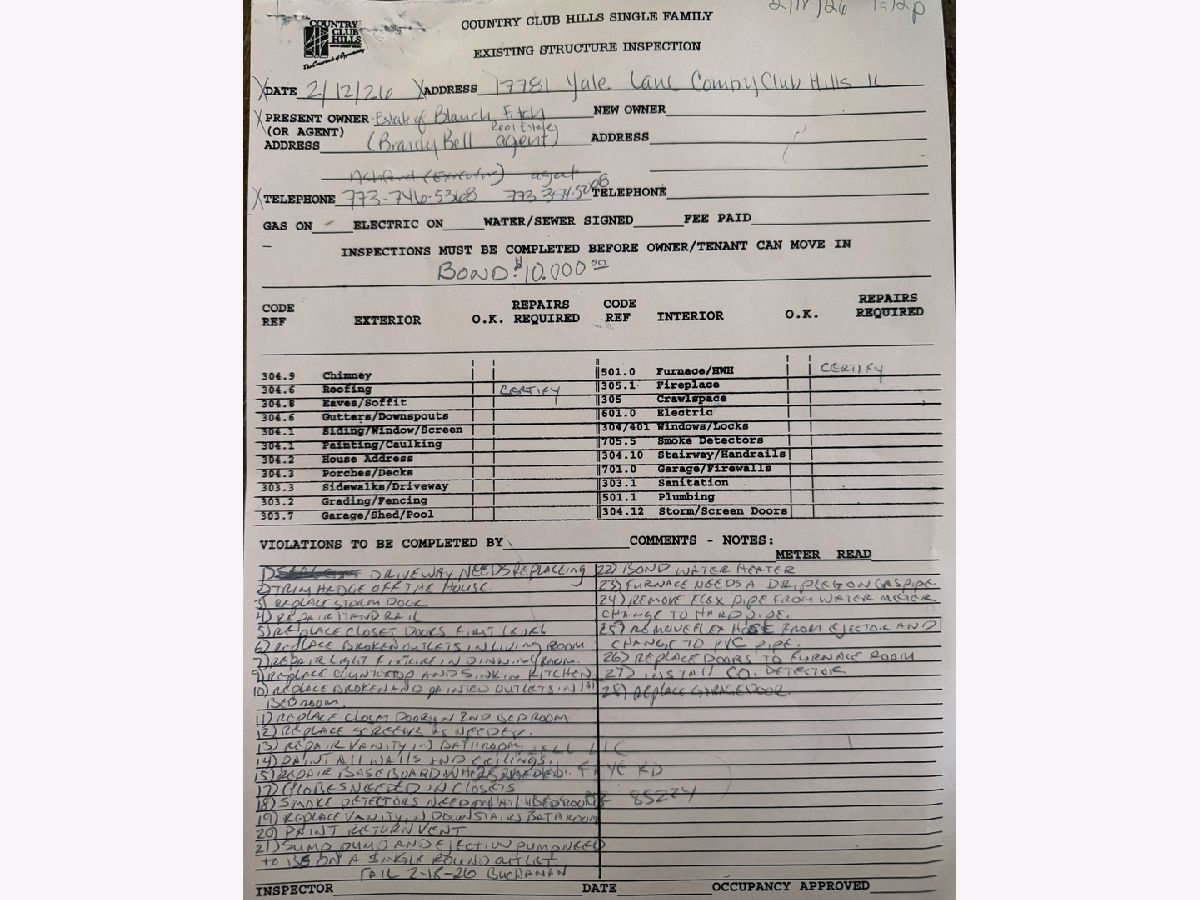 2/18/26
COUNTRY CLUB HILLS SINGLE FAMILY
COUNTRY
CLUB
HILLS
EXISTING STRUCTURE INSPECTION
X DATE 2/12/26 X ADDRESS 17781 Yale Lane Country Club Hills IL
X PRESENT OWNER Estate of Blanch Fitch NEW OWNER
(OR AGENT) Real Estate
ADDRESS (Brandy Bell agent) ADDRESS
(Executor) agent
X TELEPHONE 773-746-5368 773 TELEPHONE
GAS ON ELECTRIC ON WATER/SEWER SIGNED FEE PAID
INSPECTIONS MUST BE COMPLETED BEFORE OWNER/TENANT CAN MOVE IN
BOND: $10.000 00
CODE REF EXTERIOR O.K. REPAIRS REQUIRED CODE REF INTERIOR O.K. REPAIRS REQUIRED
304.9 Chimney 501.0 Furnace/HWH CERTIFY
304.6 Roofing CERTIFY 305.1 Fireplace
304.8 Eaves/Soffit 305 Crawlspace
304.6 Gutters/Downspouts 601.0 Electric
304.1 Siding/Window/Screen 304/401 Windows/Locks
304.1 Painting/Caulking 705.5 Smoke Detectors
304.2 House Address 304.10 Stairway/Handrails
304.3 Porches/Decks 701.0 Garage/Firewalls
303.3 Sidewalks/Driveway 303.1 Sanitation
303.2 Grading/Fencing 501.1 Plumbing
303.7 Garage/Shed/Pool 304.12 Storm/Screen Doors
VIOLATIONS TO BE COMPLETED BY COMMENTS - NOTES:
METER READ
1) DRIVEWAY NEEDS REPLACING
2) TRIM HEDGE OFF THE HOUSE
3) REPLACE STORM DOOR
4) REPAIR HANDRAIL
5) REPLACE CLOSET DOORS FIRST LEVEL
6) REPLACE BROKEN OUTLETS IN LIVING ROOM
7) REPAIR LIGHT FIXTURE IN DINNING ROOM.
9) REPLACE COUNTERTOP AND SINK IN KITCHEN
10) REPLACE BROKEN AND PAINTED OUTLETS IN 1ST
BEDROOM.
11) REPLACE CLOSET DOOR IN 2ND BEDROOM
12) REPLACE SCREENS AS NEEDED.
13) REPAIR VANITY IN BATHROOM
14) PAINT ALL WALLS AND CEILINGS
15) REPAIR BASEBOARD WHERE NEEDED.
17) GLOBES NEEDED IN CLOSETS
18) SMOKE DETECTORS NEED IN ALL BEDROOMS
19) REPLACE VANITY IN DOWNSTAIRS BATHROOM
20) PAINT RETURN VENT
21) SUMP PUMP AND EJECTION PUMP NEED
TO BE ON A SINGLE ROUND OUTLET
FAIL 2-18-26 BUCHANAN
22) BOND WATER HEATER
23) FURNACE NEEDS A DRIPLEG ON GAS PIPE
24) REMOVE FLEX PIPE FROM WATER METER
CHANGE TO HARD PIPE.
25) REMOVE FLEX HOSE FROM EJECTOR AND
CHANGE TO PVC PIPE.
26) REPLACE DOORS TO FURNACE ROOM
27) INSTALL CO. DETECTOR
28) REPLACE GARAGE DOOR.
LLC
RD
INSPECTOR DATE OCCUPANCY APPROVED